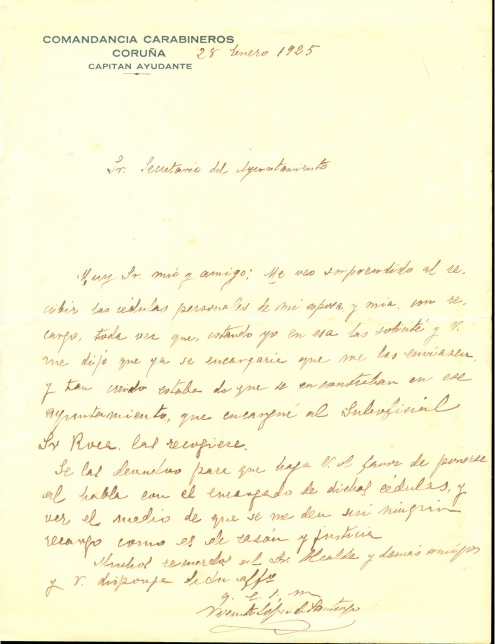 COMANDANCIA CARABINEROS
CORUÑA
CAPITAN AYUDANTE
28 Enero 1925
Sr. Secretario del Ayuntamiento
Muy Sr. mio y amigo: Me veo sorprendido al re-
cibir las cédulas personales de mi esposa y mia, con re-
cargo, toda vez que, estando yo en esa las solicité y V.
me dijó que ya se encargaria que me las enviasen
y tan creido estaba de que se encontraban en ese
Ayuntamiento, que encargné al Suboficial
Sr Roca. las recogiese.
Se las devuelvo para que haga V. el favor de ponerse
al habla con el encargado de dichas cédulas, y
ver el medio de que se me den sin ningún
recargo como es de razón y justicia
Muchos recuerdos al Sr. Alcalde y demás amigos
y V. disponga de su affmo
q. e. s. m
Vicente López de